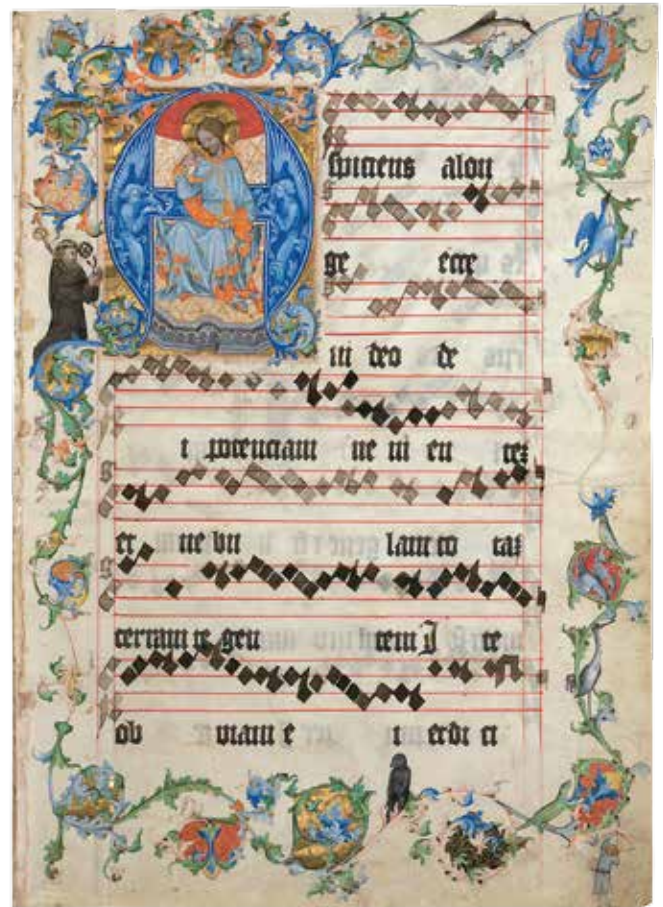 spiciens alon
ge ecce
ui deo de
i potenciam ne ni en tez
et ne bu lam to taz
terram te gen tem J te
ob viam e i et di ci